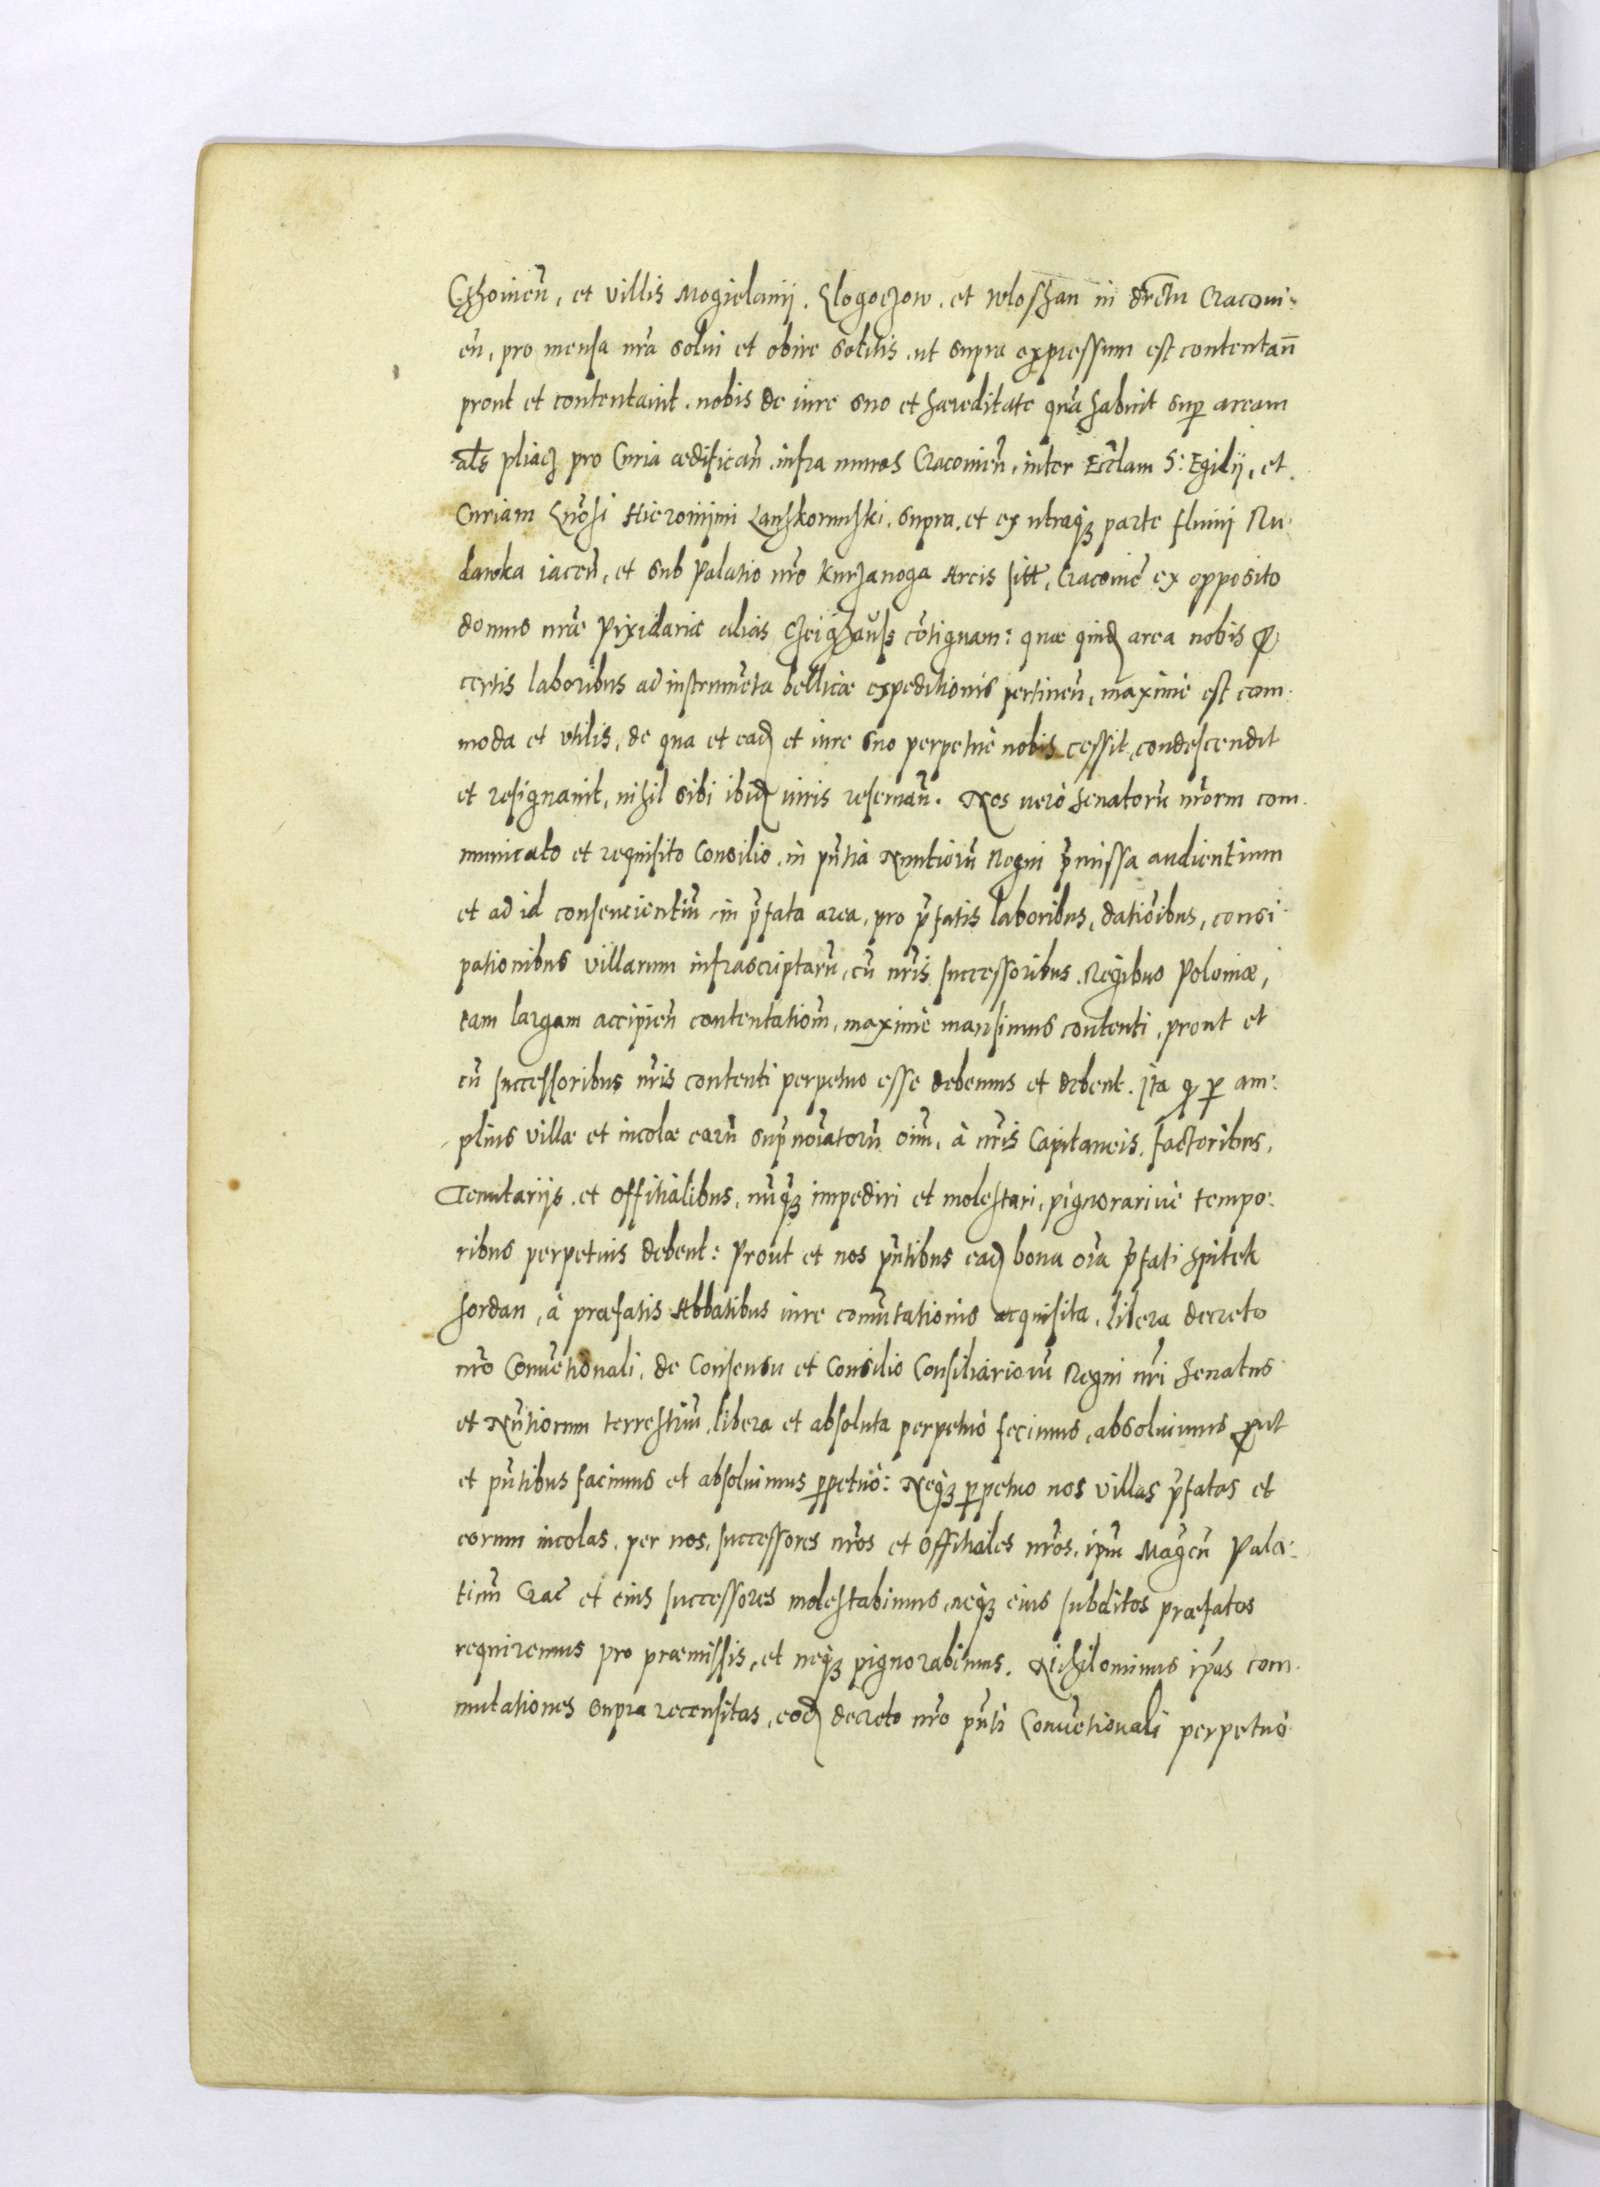 et villis Mogielanij. Glogoczow. et Wloszan in drctu Cracoui=
en̄, pro mensa nr̃a solui et obire solitis, ut supra expressum est contentan̄
prout et contentauit. nobis de iure suo et hæreditate quā habuit sup aream
als pliacz pro Curia ædifican̄. infra muros Cracouien̄, inter Eccl̃am S: Egidij, et
Curiam Hieronimi Lanszkorunski. supra. et ex utraq3 parte fluuij Ru
dawka iacen̄, et sub Palatio nr̃o Kurzanoga Arcis sitt̄, Cracouien̄ ex opposito
domus nr̃æ Pixidariæ alias Czeighauss cōtiguam: quæ quid area nobis p
certis laboribus ad instrumēta bellicæ expeditionis pertinen̄, maximè est com
moda et vtilis, de qua et ead et iure suo perpetuè nobis cessit, condescendit
et resignauit, nihil sibi ibid iuris reseruan̄. Nos uerò Senatorū nr̃orm com
municato et requisito Consilio, in pn̄tia Nuntiorū Regni p̄missa audientium
et ad id consencientiū in p̄fata area, pro p̄fatis laboribus, datiōibus, consi
pationibus villarum infrascriptarū, cū nr̃is successoribus Regibus Poloniæ,
tam largam accipien̄ contentatiom̄, maximè mansimus contenti, prout et
cū successoribus nr̃is contenti perpetuo esse debemus et debent. Ita q̄ p am=
plius villæ et incolæ earū sup̄nōiatorū oīm, à nr̃is Capitaneis, factoribus,
Tenutarijs. et Offitialibus, nūq3 impediri et molestari, pignorariuè tempo=
ribus perpetuis debent: Prout et nos pn̄tibus ead bona oīa p̄fati Spitek
Jordan, à præfatis Abbatibus iure comūtationis acquisita, libera decreto
nr̃o Conuētionali, de Consensu et Consilio Consiliariorū Regni nr̃i Senatus
et Nūtiorum terrestriū, libera et absoluta perpetuò fecimus, absoluimus put
et pn̄tibus facimus et absoluimus ppetuò: Neq3 ppetuo nos villas p̄fatas et
eorum incolas, per nos, successores nr̃os et Offitiales nr̃os, ipm̄ Mag̃cū Pala=
tinū Crac̃ et eius successores molestabimus, neq3 eius subditos præfatos
requiremus pro præmissis, et neq3 pignorabimus. Nihilominus ip̄as com
mutationes supra recensitas, eod decreto nr̃o pn̄ti Conuētionali perpetuò